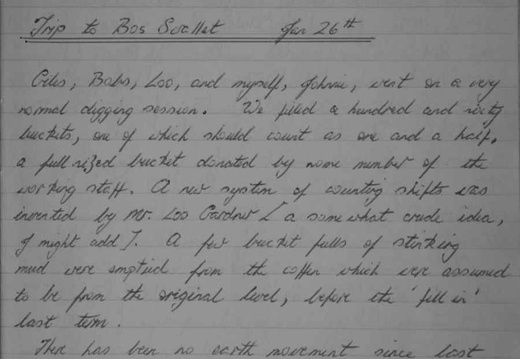 Trip to Bos Swallet Jan 26th
Giles, Babs, Loo, and myself, Johnnie, went on a very
normal digging session. We filled a hundred and sixty
buckets, one of which should count as one and a half,
a full sized bucket donated by some member of the
working staff. A new system of counting shifts was
invented by Mr. Loo Gardner [ a somewhat crude idea,
I might add ]. A few bucket fulls of stinking
mud were emptied from the coffer which were assumed
to be from the original level, before the 'fill in'
last term.
There has been no earth movement since last